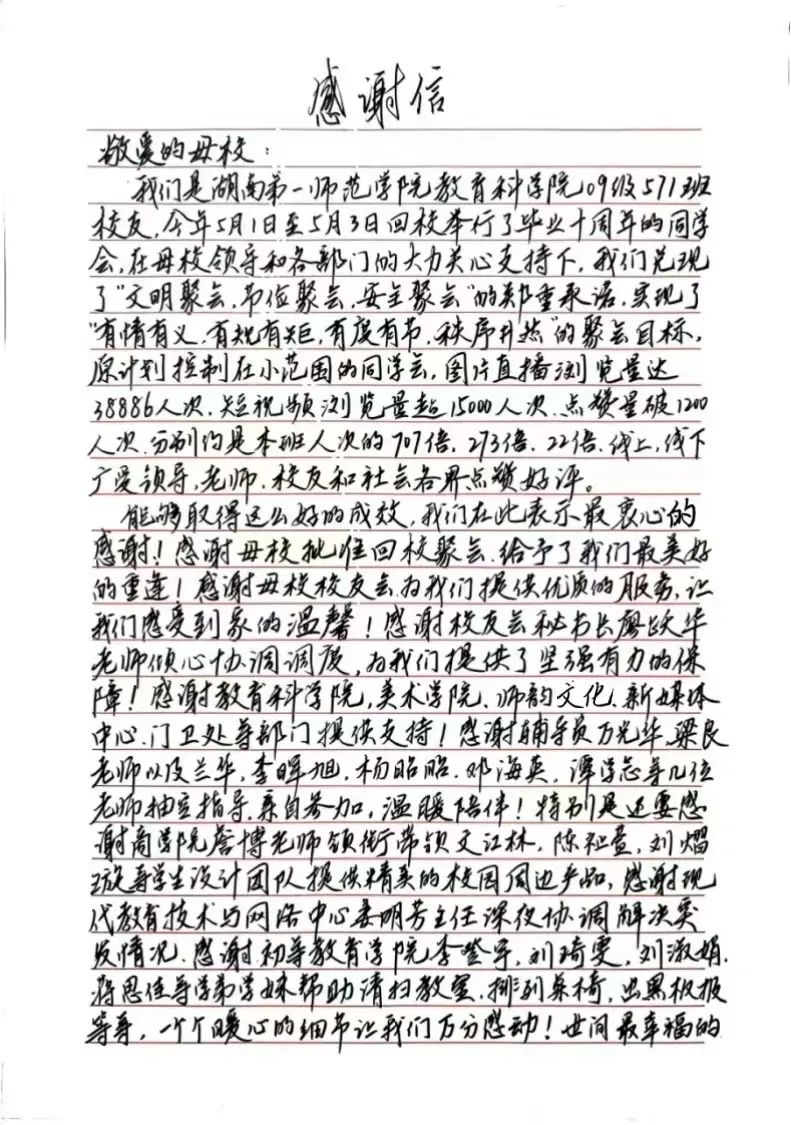 感谢信
敬爱的母校：
我们是湖南第一师范学院教育科学院09级571班
校友，今年5月1日至5月3日回校举行了毕业十周年的同学
会，在母校领导和各部门的大力关心支持下，我们兑现
了“文明聚会、节俭聚会、安全聚会”的郑重承诺，实现了
“有情有义、有规有矩、有度有节、秩序井然”的聚会目标，
原计划控制在小范围的同学会，图片直播浏览量达
38886人次、短视频浏览量超15000人次、点赞量破1200
人次、分别约是本班人次的707倍、273倍、22倍、线上，线下
广受领导，老师、校友和社会各界点赞好评。
能够取得这么好的成效，我们在此表示最衷心的
感谢！感谢母校批准回校聚会、给予了我们最美好
的重逢！感谢母校校友会为我们提供优质的服务，让
我们感受到家的温馨！感谢校友会秘书长廖跃华
老师倾心协调调度，为我们提供了坚强有力的保
障！感谢教育科学院，美术学院、师韵文化、新媒体
中心、门卫处等部门提供支持！感谢辅导员万光华、梁良
老师以及兰华，李晖旭，杨昭昭、邓海英，谭学志等几位
老师抽空指导、亲自参加，温暖陪伴！特别是还要感
谢商学院詹博老师领衔带领文江林，陈祉萱，刘熠
璇等学生设计团队提供精美的校园周边产品，感谢现
代教育技术与网络中心姜明芳主任深夜协调解决突
发情况、感谢初等教育学院李，刘琦雯，刘淑娟、
蒋思佳等学弟学妹帮助清扫教室、排列桌椅，出黑板报
等等，一个个暖心的细节让我们万分感动！世间最幸福的